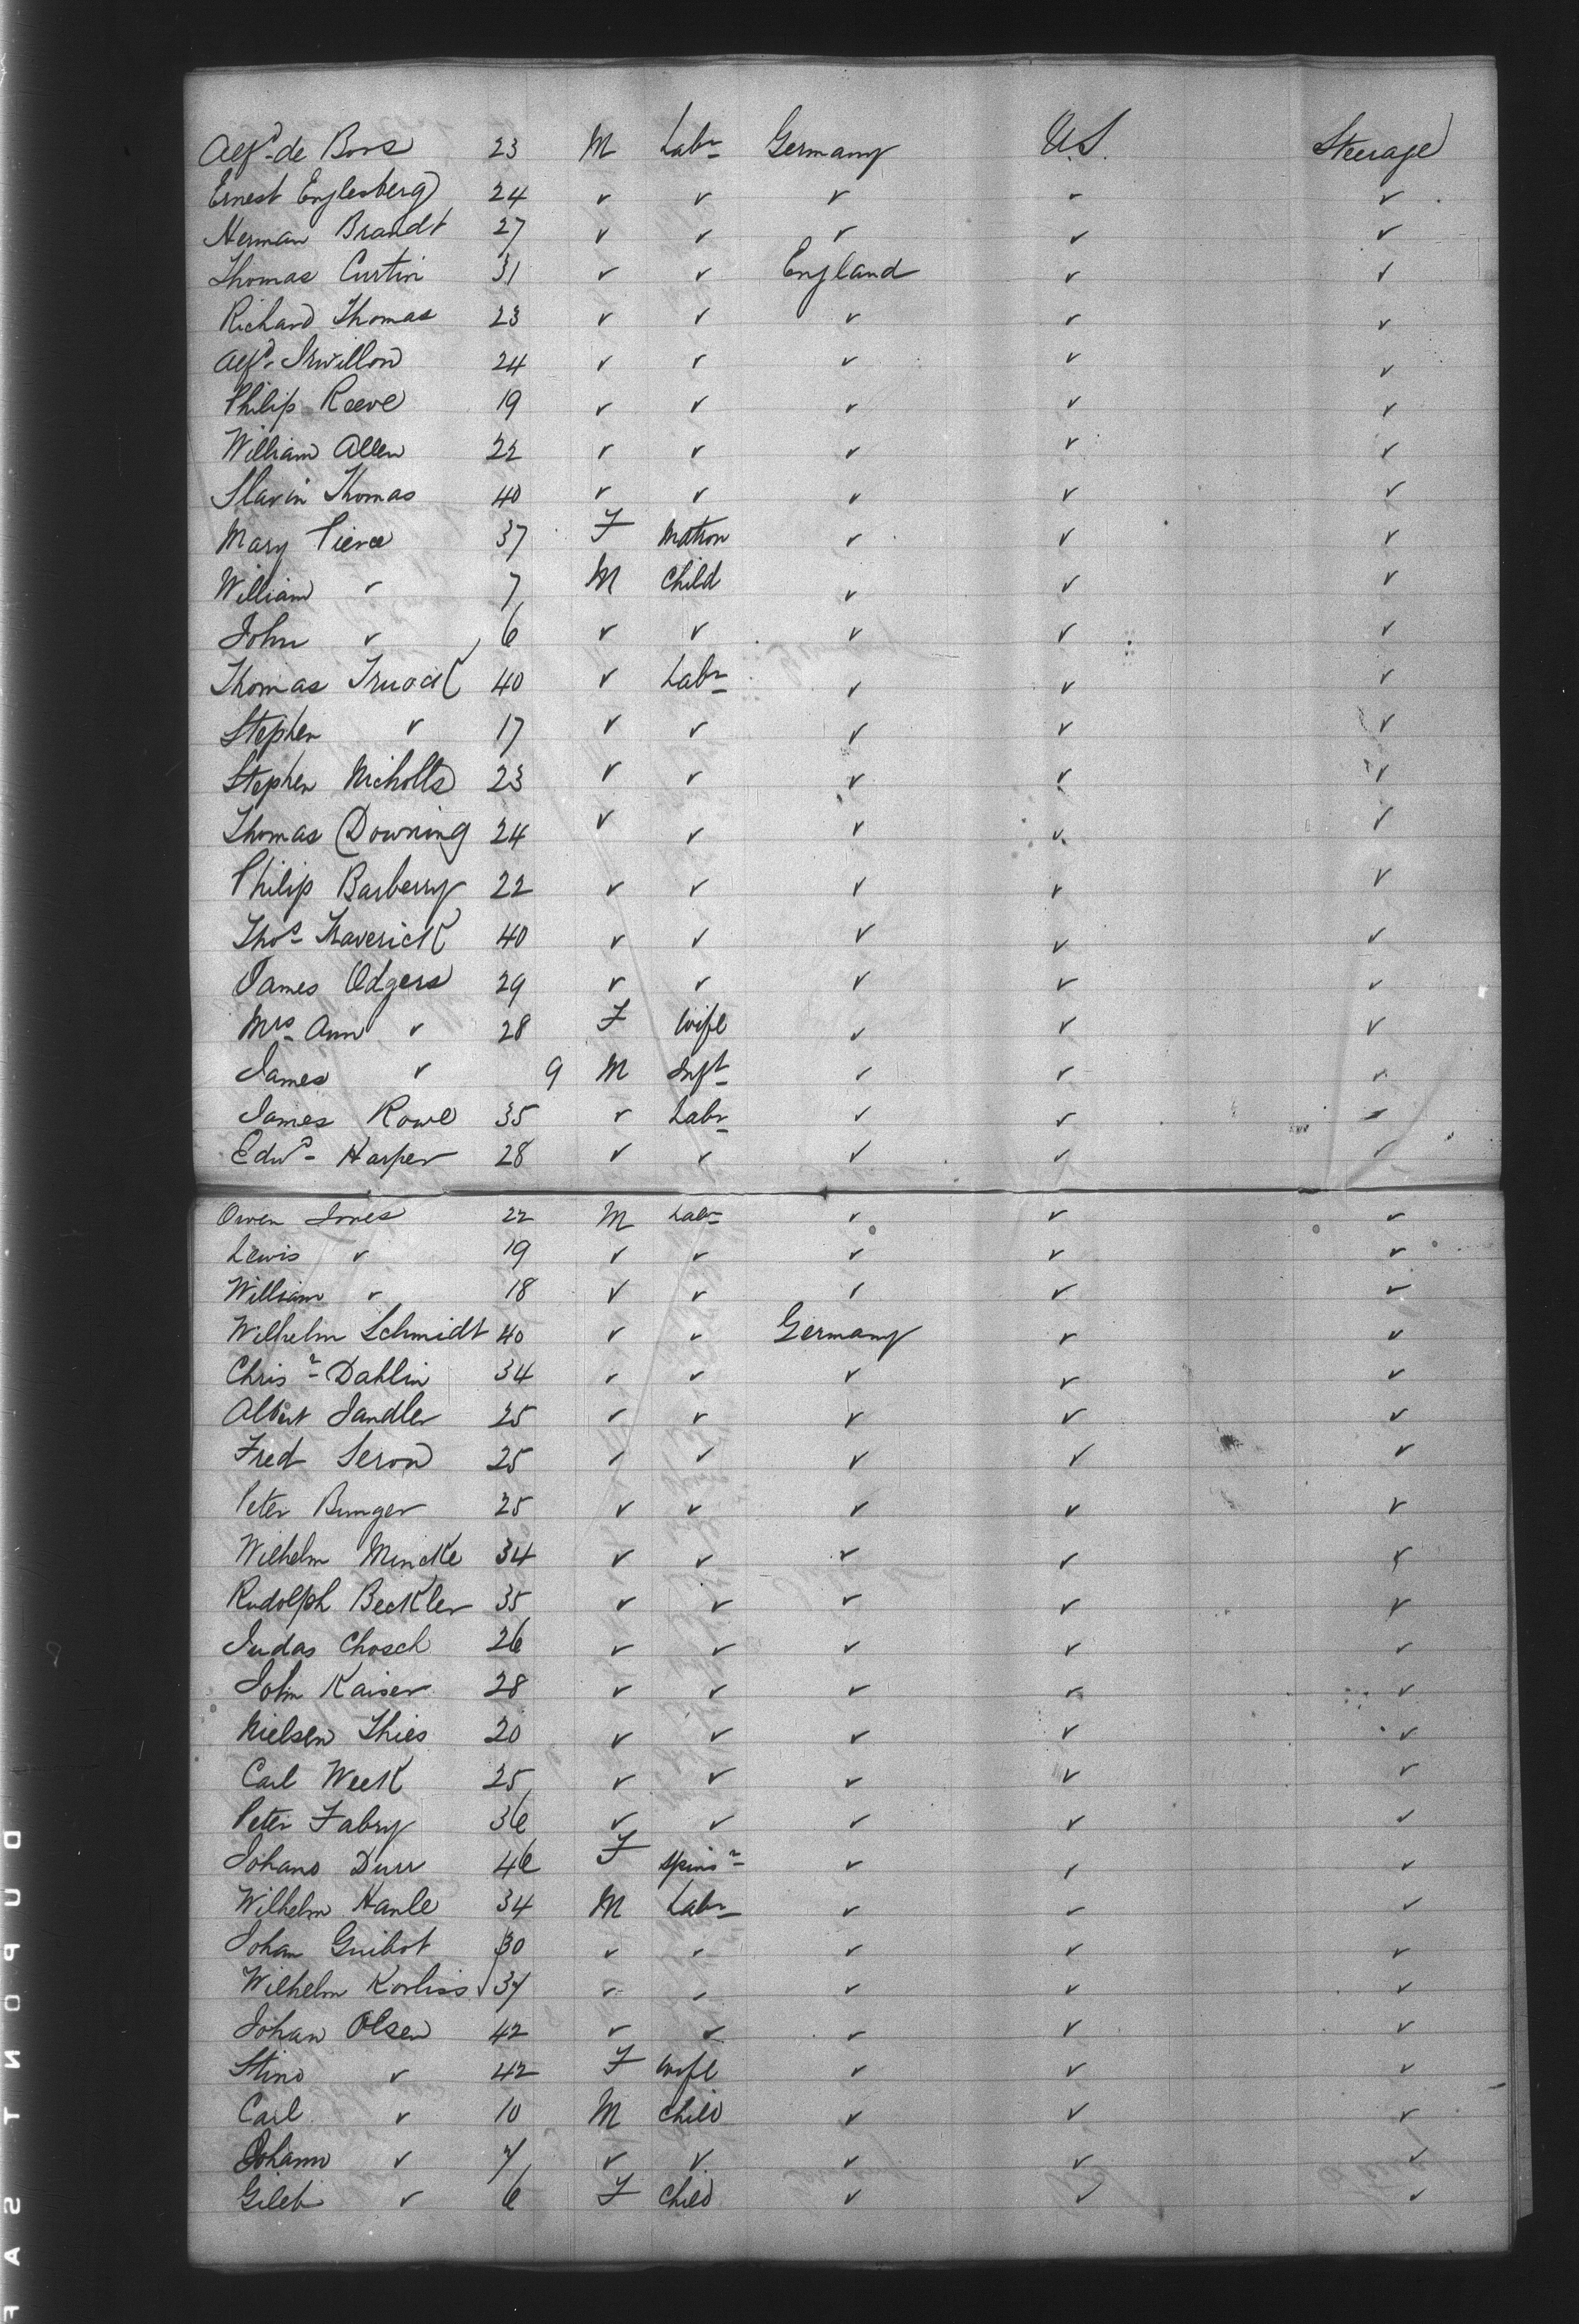 Alfd de Bors 23 M Labr Germany U.S. Steerage
Ernest Englesberg 24 ✓ ✓ ✓ ✓ ✓
Herman Brandt 27 ✓ ✓ ✓ ✓ ✓
Thomas Curtin 31 ✓ ✓ England ✓ ✓
Richard Thomas 23 ✓ ✓ ✓ ✓ ✓
Alfd 24 ✓ ✓ ✓ ✓ ✓
Philip Reeve 19 ✓ ✓ ✓ ✓ ✓
William Allen 22 ✓ ✓ ✓ ✓ ✓
Slavin Thomas 40 ✓ ✓ ✓ ✓ ✓
Mary Pierce 37 F Matron ✓ ✓ ✓
William ✓ 7 M Child ✓ ✓ ✓
John ✓ 6 ✓ ✓ ✓ ✓ ✓
Thomas 40 ✓ Labr ✓ ✓ ✓
Stephen ✓ 17 ✓ ✓ ✓ ✓ ✓
Stephen Nicholls 23 ✓ ✓ ✓ ✓ ✓
Thomas Downing 24 ✓ ✓ ✓ ✓ ✓
Philip Barberry 22 ✓ ✓ ✓ ✓ ✓
Thos Traverick 40 ✓ ✓ ✓ ✓ ✓
James Odgers 29 ✓ ✓ ✓ ✓ ✓
Mrs Ann ✓ 28 F Wife ✓ ✓ ✓
James ✓ 9 M Inft ✓ ✓ ✓
James Rowe 35 ✓ Labr ✓ ✓ ✓
Edwd Harper 28 ✓ ✓ ✓ ✓ ✓
Owen Jones 22 M Labr ✓ ✓ ✓
Lewis ✓ 19 ✓ ✓ ✓ ✓ ✓
William ✓ 18 ✓ ✓ ✓ ✓ ✓
Wilhelm Schmidt 40 ✓ ✓ Germany ✓ ✓
Chrisr Dahlin 34 ✓ ✓ ✓ ✓ ✓
Albert Sandler 25 ✓ ✓ ✓ ✓ ✓
Fred Seron 25 ✓ ✓ ✓ ✓ ✓
Peter Bunger 25 ✓ ✓ ✓ ✓ ✓
Wilhelm Mincke 34 ✓ ✓ ✓ ✓ ✓
Rudolph Beckler 35 ✓ ✓ ✓ ✓ ✓
Judas Chosch 26 ✓ ✓ ✓ ✓ ✓
John Kaiser 28 ✓ ✓ ✓ ✓ ✓
Nielsen Thies 20 ✓ ✓ ✓ ✓ ✓
Carl Week 25 ✓ ✓ ✓ ✓ ✓
Peter Fabry 36 ✓ ✓ ✓ ✓ ✓
Johano Durr 46 F Spinsr ✓ ✓ ✓
Wilhelm Hanle 34 M Labr ✓ ✓ ✓
Johan Guibot 30 ✓ ✓ ✓ ✓ ✓
Wilhelm Korliss 37 ✓ ✓ ✓ ✓ ✓
Johan Olsen 42 ✓ ✓ ✓ ✓ ✓
Stino ✓ 42 F Wife ✓ ✓ ✓
Carl ✓ 10 M Child ✓ ✓ ✓
Johann ✓ 7 ✓ ✓ ✓ ✓ ✓
Gileb ✓ 6 F Child ✓ ✓ ✓
DUPONT SAF